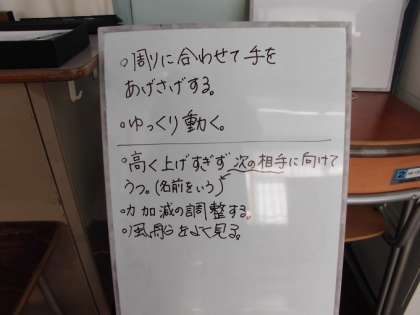 ○周りに合わせて手を
あげさげする。
○ゆっくり動く。
○高く上げすぎず次の相手に向けて
うつ。(名前をいう)
○力加減の調整する。
○風船をよく見る。